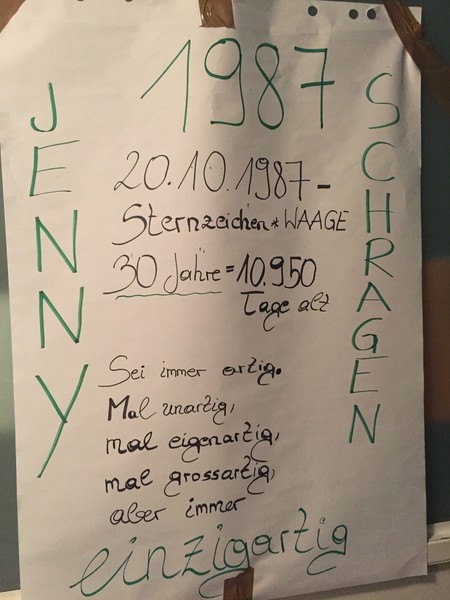 1987
JENNY
SCHRAGEN
20.10.1987-
Sternzeichen * WAAGE
30 Jahre = 10.950
Tage alt
Sei immer artig.
Mal unartig,
mal eigenartig,
mal grossartig,
aber immer
einzigartig